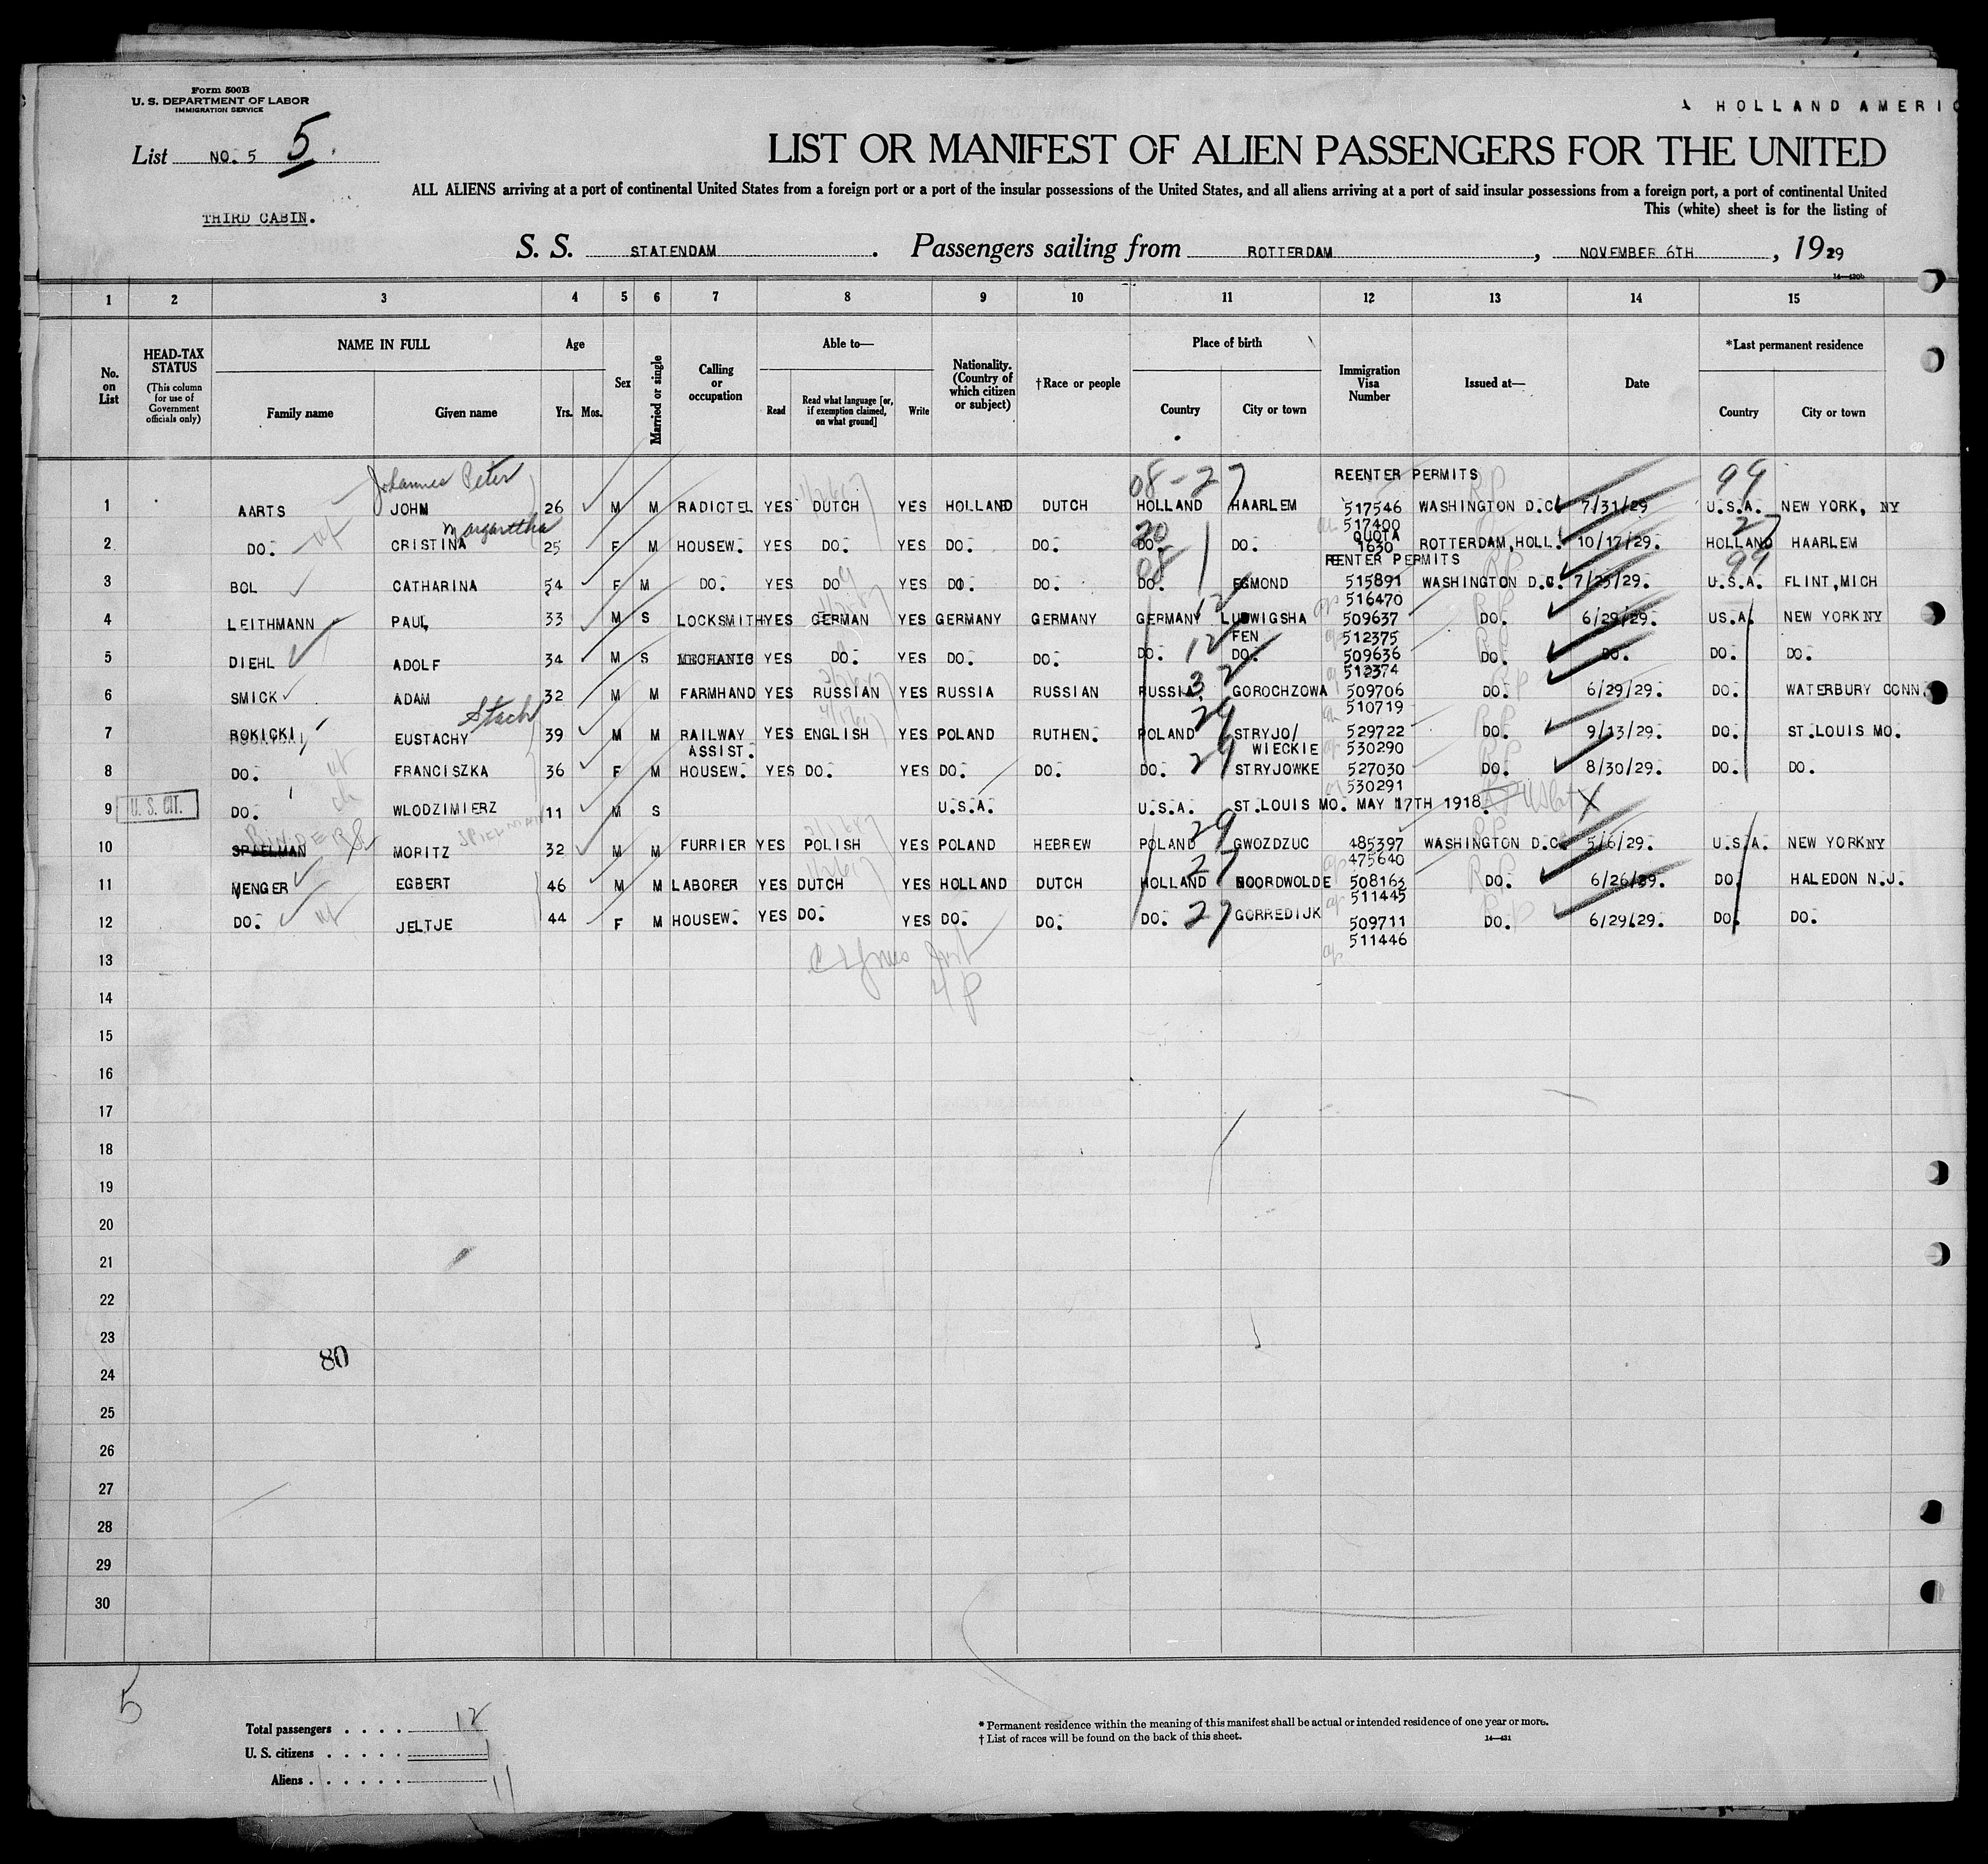 Form 500B
U. S. DEPARTMENT OF LABOR
IMMIGRATION SERVICE
HOLLAND AMERIC
List NO. 5 5
LIST OR MANIFEST OF ALIEN PASSENGERS FOR THE UNITED
ALL ALIENS arriving at a port of continental United States from a foreign port or a port of the insular possessions of the United States, and all aliens arriving at a port of said insular possessions from a foreign port, a port of continental United
THIRD CABIN.
This (white) sheet is for the listing of
S. S. STATENDAM . Passengers sailing from ROTTERDAM , NOVEMBER 6TH , 1929
1 2 3 4 5 6 7 8 9 10 11 12 13 14 15
No. on List
HEAD-TAX STATUS (This column for use of Government officials only)
NAME IN FULL
Family name Given name
Age
Yrs. Mos.
Sex
Married or single
Calling or occupation
Able to—
Read
Read what language [or, if exemption claimed, on what ground]
Write
Nationality. (Country of which citizen or subject)
†Race or people
Place of birth
Country City or town
Immigration Visa Number
Issued at—
Date
*Last permanent residence
Country City or town
Johannes Peter 08-27 REENTER PERMITS 99
1 AARTS JOHN 26 M M RADIOTEL YES DUTCH YES HOLLAND DUTCH HOLLAND HAARLEM 517546 WASHINGTON D.C. 7/31/29 U.S.A. NEW YORK, NY
Margaretha 20 517400 QUOTA 27
2 DO. CRISTINA 25 F M HOUSEW. YES DO. YES DO. DO. DO. DO. 1630 ROTTERDAM,HOLL. 10/17/29. HOLLAND HAARLEM
08 REENTER PERMITS 99
3 BOL CATHARINA 54 F M DO. YES DO YES DO. DO. DO. EGMOND 515891 WASHINGTON D.C. 7/25/29. U.S.A. FLINT,MICH
516470
4 LEITHMANN PAUL 33 M S LOCKSMITH YES GERMAN YES GERMANY GERMANY GERMANY 12 LUDWIGSHA 509637 DO. 6/29/29. US.A. NEW YORK NY
FEN 512375
5 DIEHL ADOLF 34 M S MECHANIC YES DO. YES DO. DO. DO. 12 DO. 509636 DO. DO. DO. DO.
512374
6 SMICK ADAM 32 M M FARMHAND YES RUSSIAN YES RUSSIA RUSSIAN RUSSIA 32 GOROCHZOWA 509706 DO. 6/29/29. DO. WATERBURY CONN.
Stach 29 510719
7 ROKICKI EUSTACHY 39 M M RAILWAY YES ENGLISH YES POLAND RUTHEN. POLAND STRYJO/ 529722 DO. 9/13/29. DO. ST.LOUIS MO.
ASSIST. WIECKIE 530290
8 DO. FRANCISZKA 36 F M HOUSEW. YES DO. YES DO. DO. DO. 29 STRYJOWKE 527030 DO. 8/30/29. DO. DO.
530291
9 U. S. CIT. DO. WLODZIMIERZ 11 M S U.S.A. U.S.A. ST.LOUIS MO. MAY 17TH 1918. X
SPIELMAN 29
10 SPIELMAN MORITZ 32 M M FURRIER YES POLISH YES POLAND HEBREW POLAND GWOZDZUC 485397 WASHINGTON D.C. 5/6/29. U.S.A. NEW YORKNY
27 475640
11 MENGER EGBERT 46 M M LABORER YES DUTCH YES HOLLAND DUTCH HOLLAND NOORDWOLDE 508163 DO. 6/26/29. DO. HALEDON N.J.
511445
12 DO. JELTJE 44 F M HOUSEW. YES DO. YES DO. DO. DO. 27 GORREDIJK 509711 DO. 6/29/29. DO. DO.
511446
13
14
15
16
17
18
19
20
21
22
23
80
24
25
26
27
28
29
30
5
Total passengers . . . . 12
U. S. citizens . . . . . 1
Aliens . . . . . . 11
* Permanent residence within the meaning of this manifest shall be actual or intended residence of one year or more.
† List of races will be found on the back of this sheet.
14—431